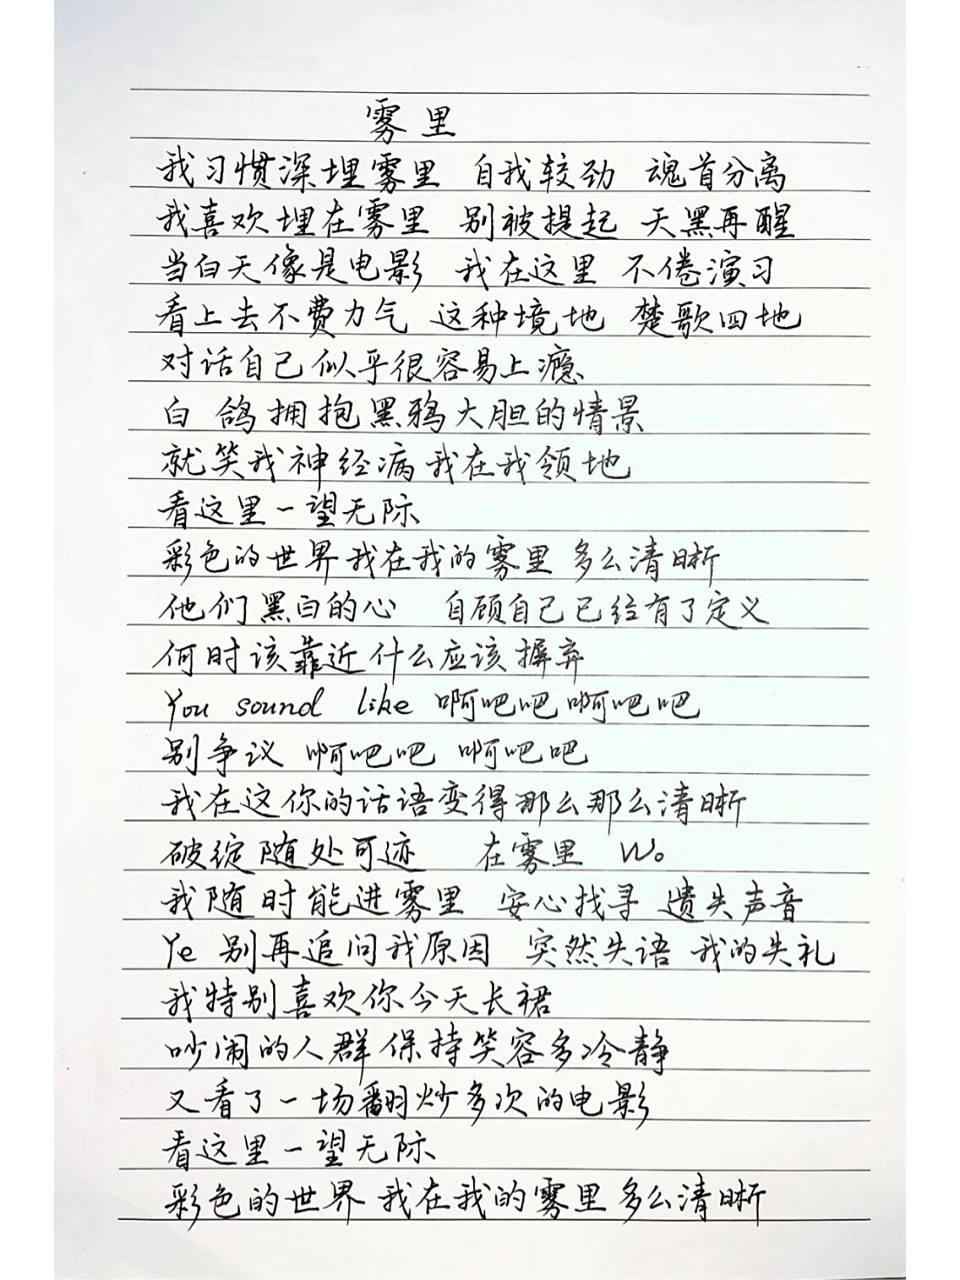 雾里
我习惯深埋雾里 自我较劲 魂首分离
我喜欢埋在雾里 别被提起 天黑再醒
当白天像是电影 我在这里 不倦演习
看上去不费力气 这种境地 楚歌四地
对话自己似乎很容易上瘾
白 鸽拥抱黑鸦大胆的情景
就笑我神经病我在我领地
看这里一望无际
彩色的世界我在我的雾里 多么清晰
他们黑白的心 自顾自己已经有了定义
何时该靠近什么应该摒弃
You sound like 啊吧吧啊吧吧
别争议 啊吧吧 啊吧吧
我在这你的话语变得那么那么清晰
破绽随处可迹 在雾里 Wo
我随时能进雾里 安心找寻 遗失声音
Ye 别再追问我原因 突然失语 我的失礼
我特别喜欢你今天长裙
吵闹的人群保持笑容多冷静
又看了一场翻炒多次的电影
看这里一望无际
彩色的世界 我在我的雾里 多么清晰